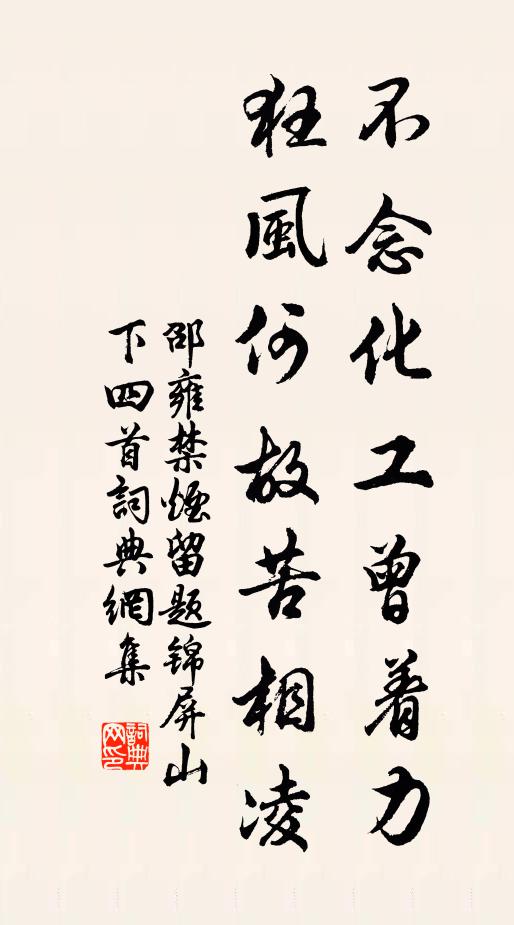 不念化工曾着力
狂風何故苦相凌
邵雍禁煙留题锦屏山
下四首詞典網集
詞典
网印